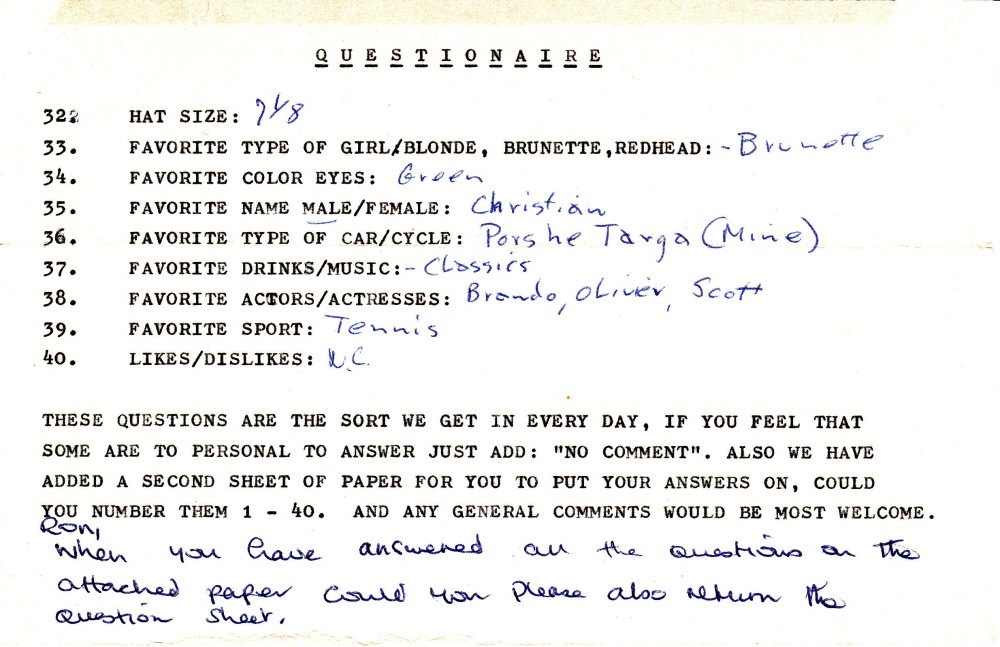 QUESTIONAIRE
32. HAT SIZE: 7 1/8
33. FAVORITE TYPE OF GIRL/BLONDE, BRUNETTE,REDHEAD: - Brunette
34. FAVORITE COLOR EYES: Green
35. FAVORITE NAME MALE/FEMALE: Christian
36. FAVORITE TYPE OF CAR/CYCLE: Porshe Targa (Mine)
37. FAVORITE DRINKS/MUSIC:- Classics
38. FAVORITE ACTORS/ACTRESSES: Brando, Olivier, Scott
39. FAVORITE SPORT: Tennis
40. LIKES/DISLIKES: N.C.
THESE QUESTIONS ARE THE SORT WE GET IN EVERY DAY, IF YOU FEEL THAT
SOME ARE TO PERSONAL TO ANSWER JUST ADD: "NO COMMENT". ALSO WE HAVE
ADDED A SECOND SHEET OF PAPER FOR YOU TO PUT YOUR ANSWERS ON, COULD
YOU NUMBER THEM 1 - 40. AND ANY GENERAL COMMENTS WOULD BE MOST WELCOME.
Ron,
When you have answered all the questions on the
attached paper could you please also return the
question sheet.